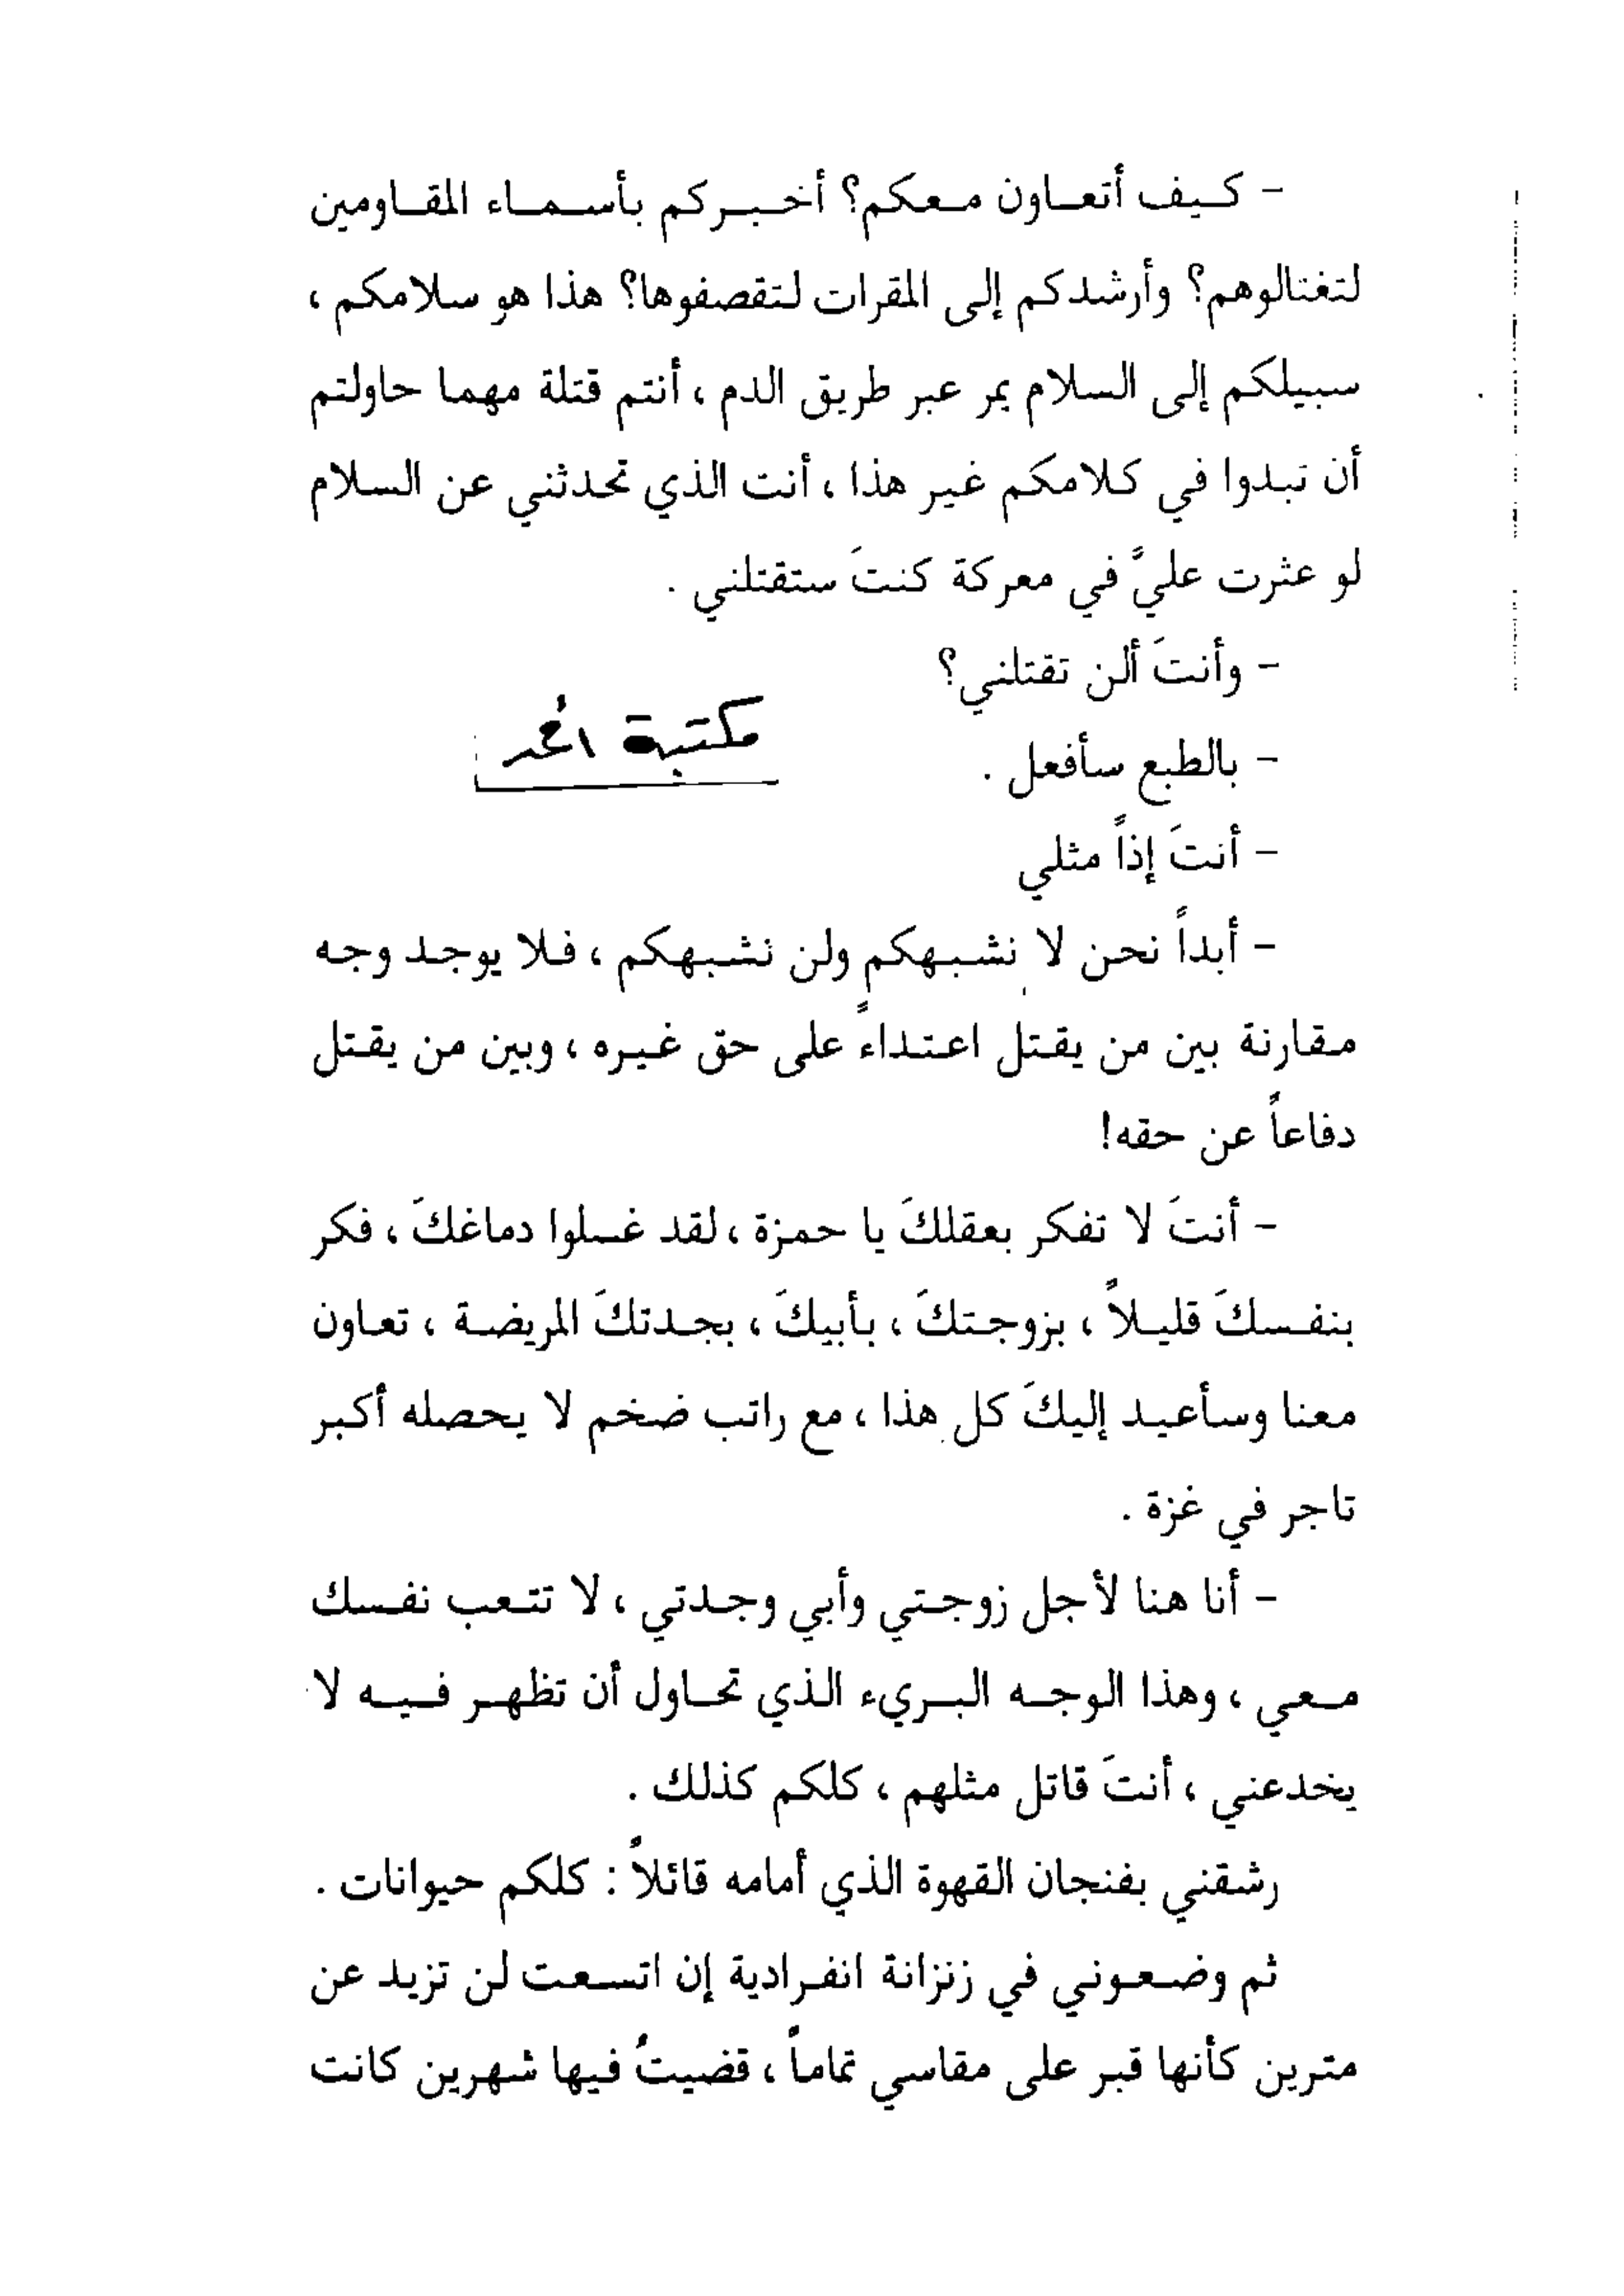 - كيف أتعاون معكم؟ أخبركم بأسماء المقاومين
لتغتالوهم؟ وأرشدكم إلى المقرات لتقصفوها؟ هذا هو سلامكم ،
سبيلكم إلى السلام يمر عبر طريق الدم ، أنتم قتلة مهما حاولتم
أن تبدوا في كلامكم غير هذا ، أنت الذي تحدثني عن السلام
لو عثرت عليَّ في معركة كنتَ ستقتلني .
- وأنتَ ألن تقتلني؟
مكتبة
- بالطبع سأفعل .
- أنتَ إذاً مثلي
- أبداً نحن لا نشبهكم ولن نشبهكم ، فلا يوجد وجه
مقارنة بين من يقتل اعتداءً على حق غيره ، وبين من يقتل
دفاعاً عن حقه!
- أنتَ لا تفكر بعقلكَ يا حمزة ، لقد غسلوا دماغكَ ، فكر
بنفسكَ قليلاً ، بزوجتكَ ، بأبيكَ ، بجدتكَ المريضة ، تعاون
معنا وسأعيد إليكَ كل هذا ، مع راتب ضخم لا يحصله أكبر
تاجر في غزة .
- أنا هنا لأجل زوجتي وأبي وجدتي ، لا تتعب نفسك
معي ، وهذا الوجه البريء الذي تحاول أن تظهر فيه لا
يخدعني ، أنتَ قاتل مثلهم ، كلكم كذلك .
رشقني بفنجان القهوة الذي أمامه قائلاً : كلكم حيوانات .
ثم وضعوني في زنزانة انفرادية إن اتسعت لن تزيد عن
مترين كأنها قبر على مقاسي تماماً ، قضيتُ فيها شهرين كانت